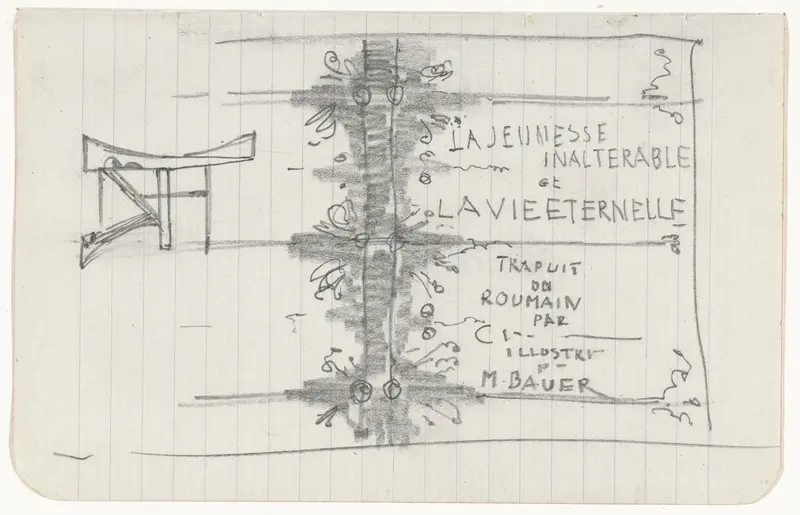 LA JEUNESSE
INALTERABLE
et
LA VIE ETERNELLE
TRADUIT
DU
ROUMAIN
PAR
C
ILLUSTR
M. BAUER